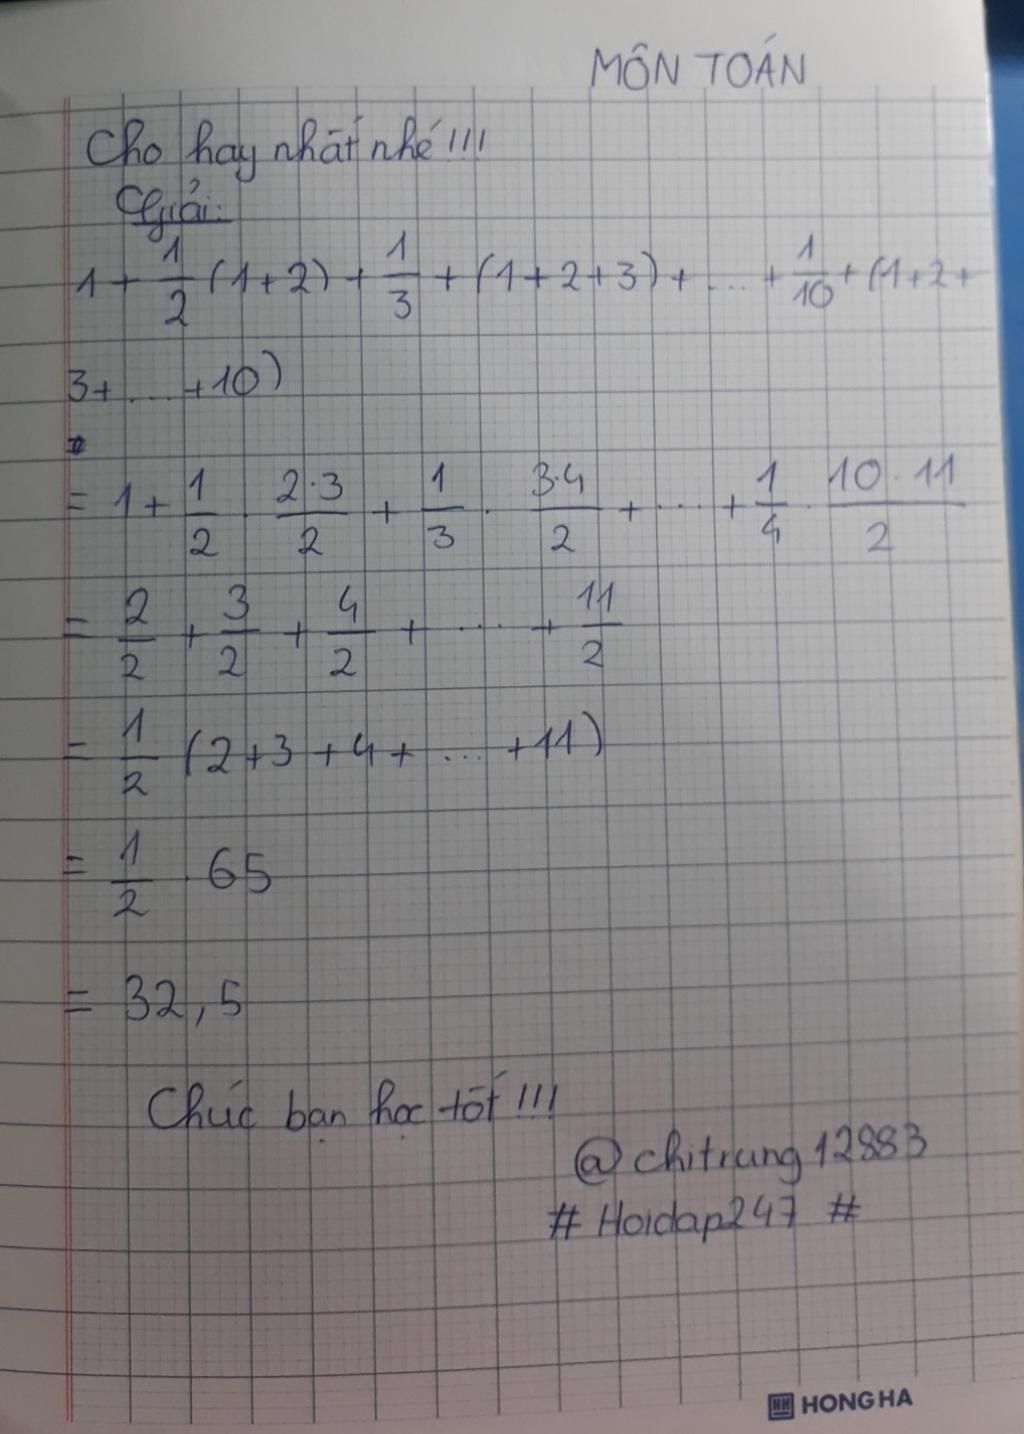 MÔN TOÁN
Cho hay nhất nhé!!!
Giải:
1 + 1/2 (1+2) + 1/3 + (1+2+3) + ... + 1/10 + (1+2+
3+ ... +10)
= 1 + 1/2 . 2·3/2 + 1/3 . 3·4/2 + ... + 1/4 . 10.11/2
= 2/2 + 3/2 + 4/2 + ... + 11/2
= 1/2 (2+3+4+ ... +11)
= 1/2 . 65
= 32,5
Chúc bạn học tốt!!!
@chitrung12883
# Hoidap247 #
HONG HA